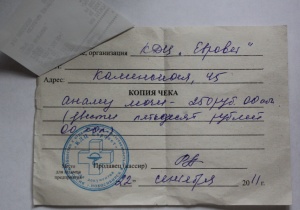 организация КДЦ "Евровет"
Адрес. Каменская, 45
КОПИЯ ЧЕКА
анализ мочи - 250 руб 00 коп
(двести пятьдесят рублей
00 коп.)
Продавец (кассир)
22 сентября 2011 г.